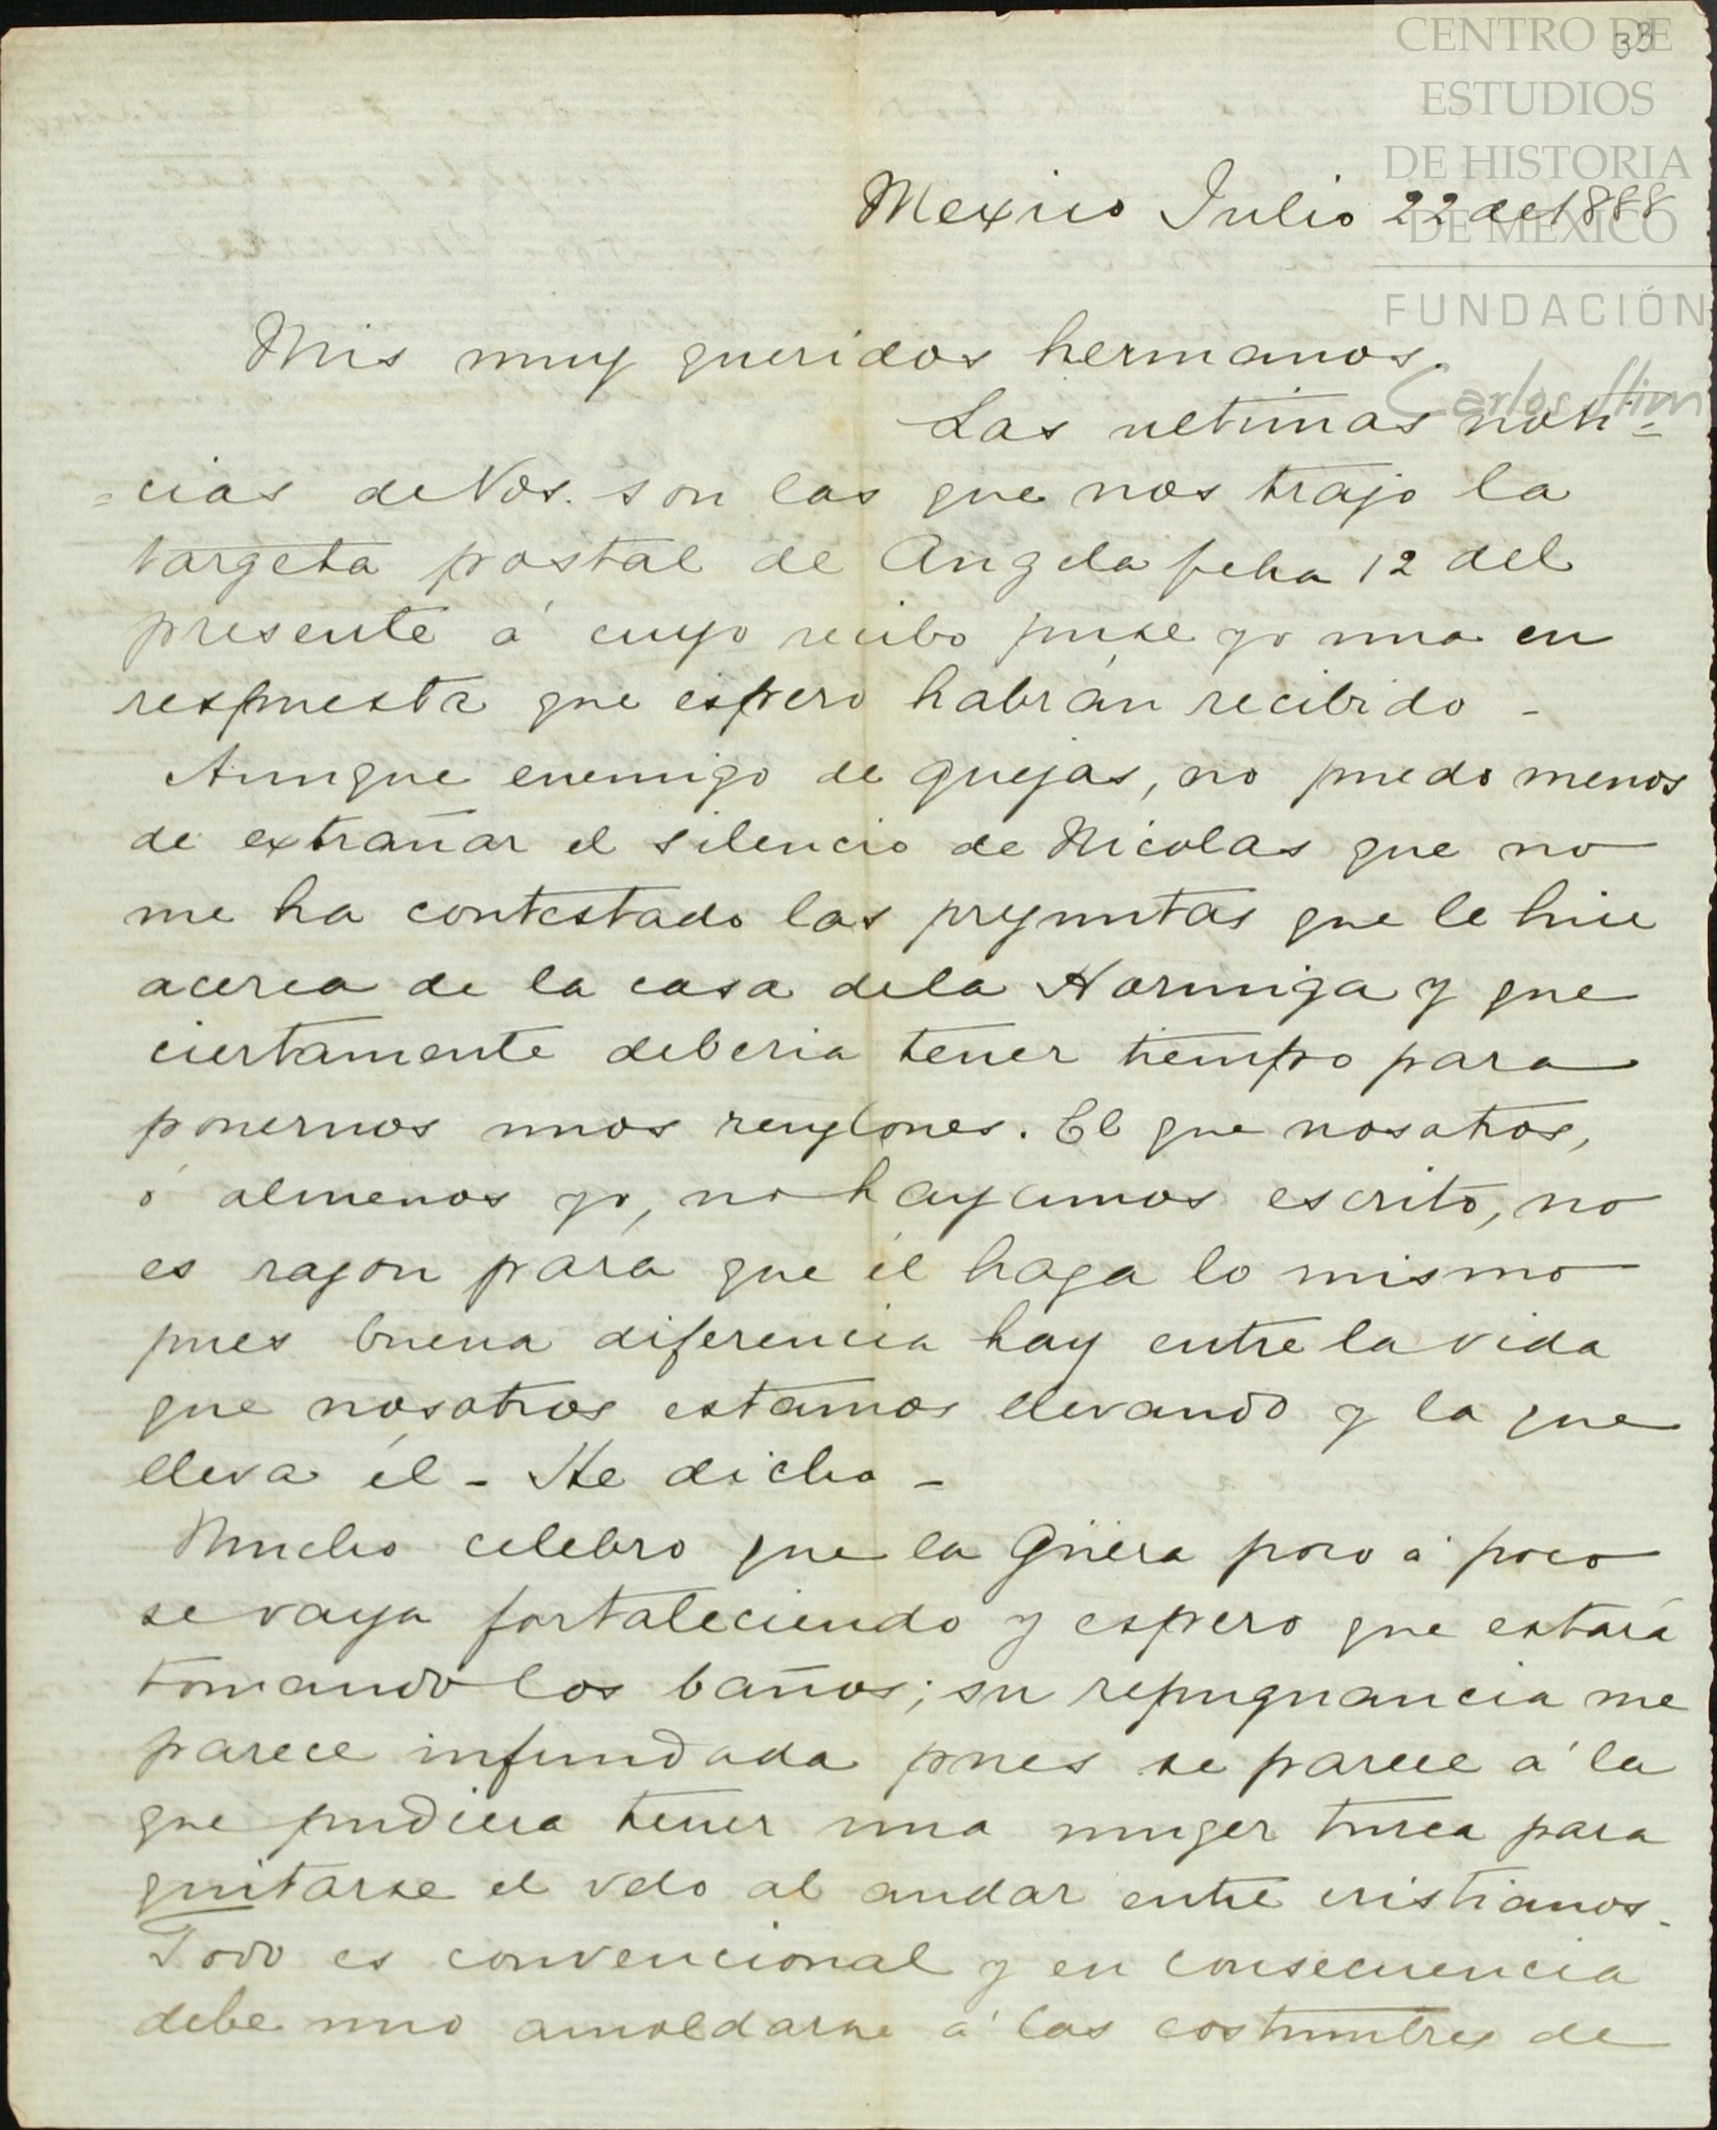 33
CENTRO DE
ESTUDIOS
DE HISTORIA
DE MÉXICO
FUNDACIÓN
Carlos Slim
Mexico Julio 22 de 1888
Mis muy queridos hermanos.
Las ultimas noti=
=cias de Vos. son las que nos trajo la
targeta postal de Angela fecha 12 del
presente á cuyo recibo puse yo una en
respuesta que espero habrán recibido -
Aunque enemigo de quejas, no puedo menos
de extrañar el silencio de Nicolas que no
me ha contestado las preguntas que le hice
acerca de la casa dela Hormiga y que
ciertamente deberia tener tiempo para
ponernos unos renglones. El que nosotros,
ó almenos yo, no hayamos escrito, no
es razon para que él haga lo mismo
pues buena diferencia hay entre la vida
que nosotros estamos llevando y la que
lleva él - He dicho -
Mucho celebro que la Güera poco á poco
se vaya fortaleciendo y espero que estará
tomando los baños; su repugnancia me
parece infundada pues se parece á la
que pudiera tener una muger turca para
quitarse el velo al andar entre cristianos.
Todo es convencional y en consecuencia
debe uno amoldarse á las costumbres de